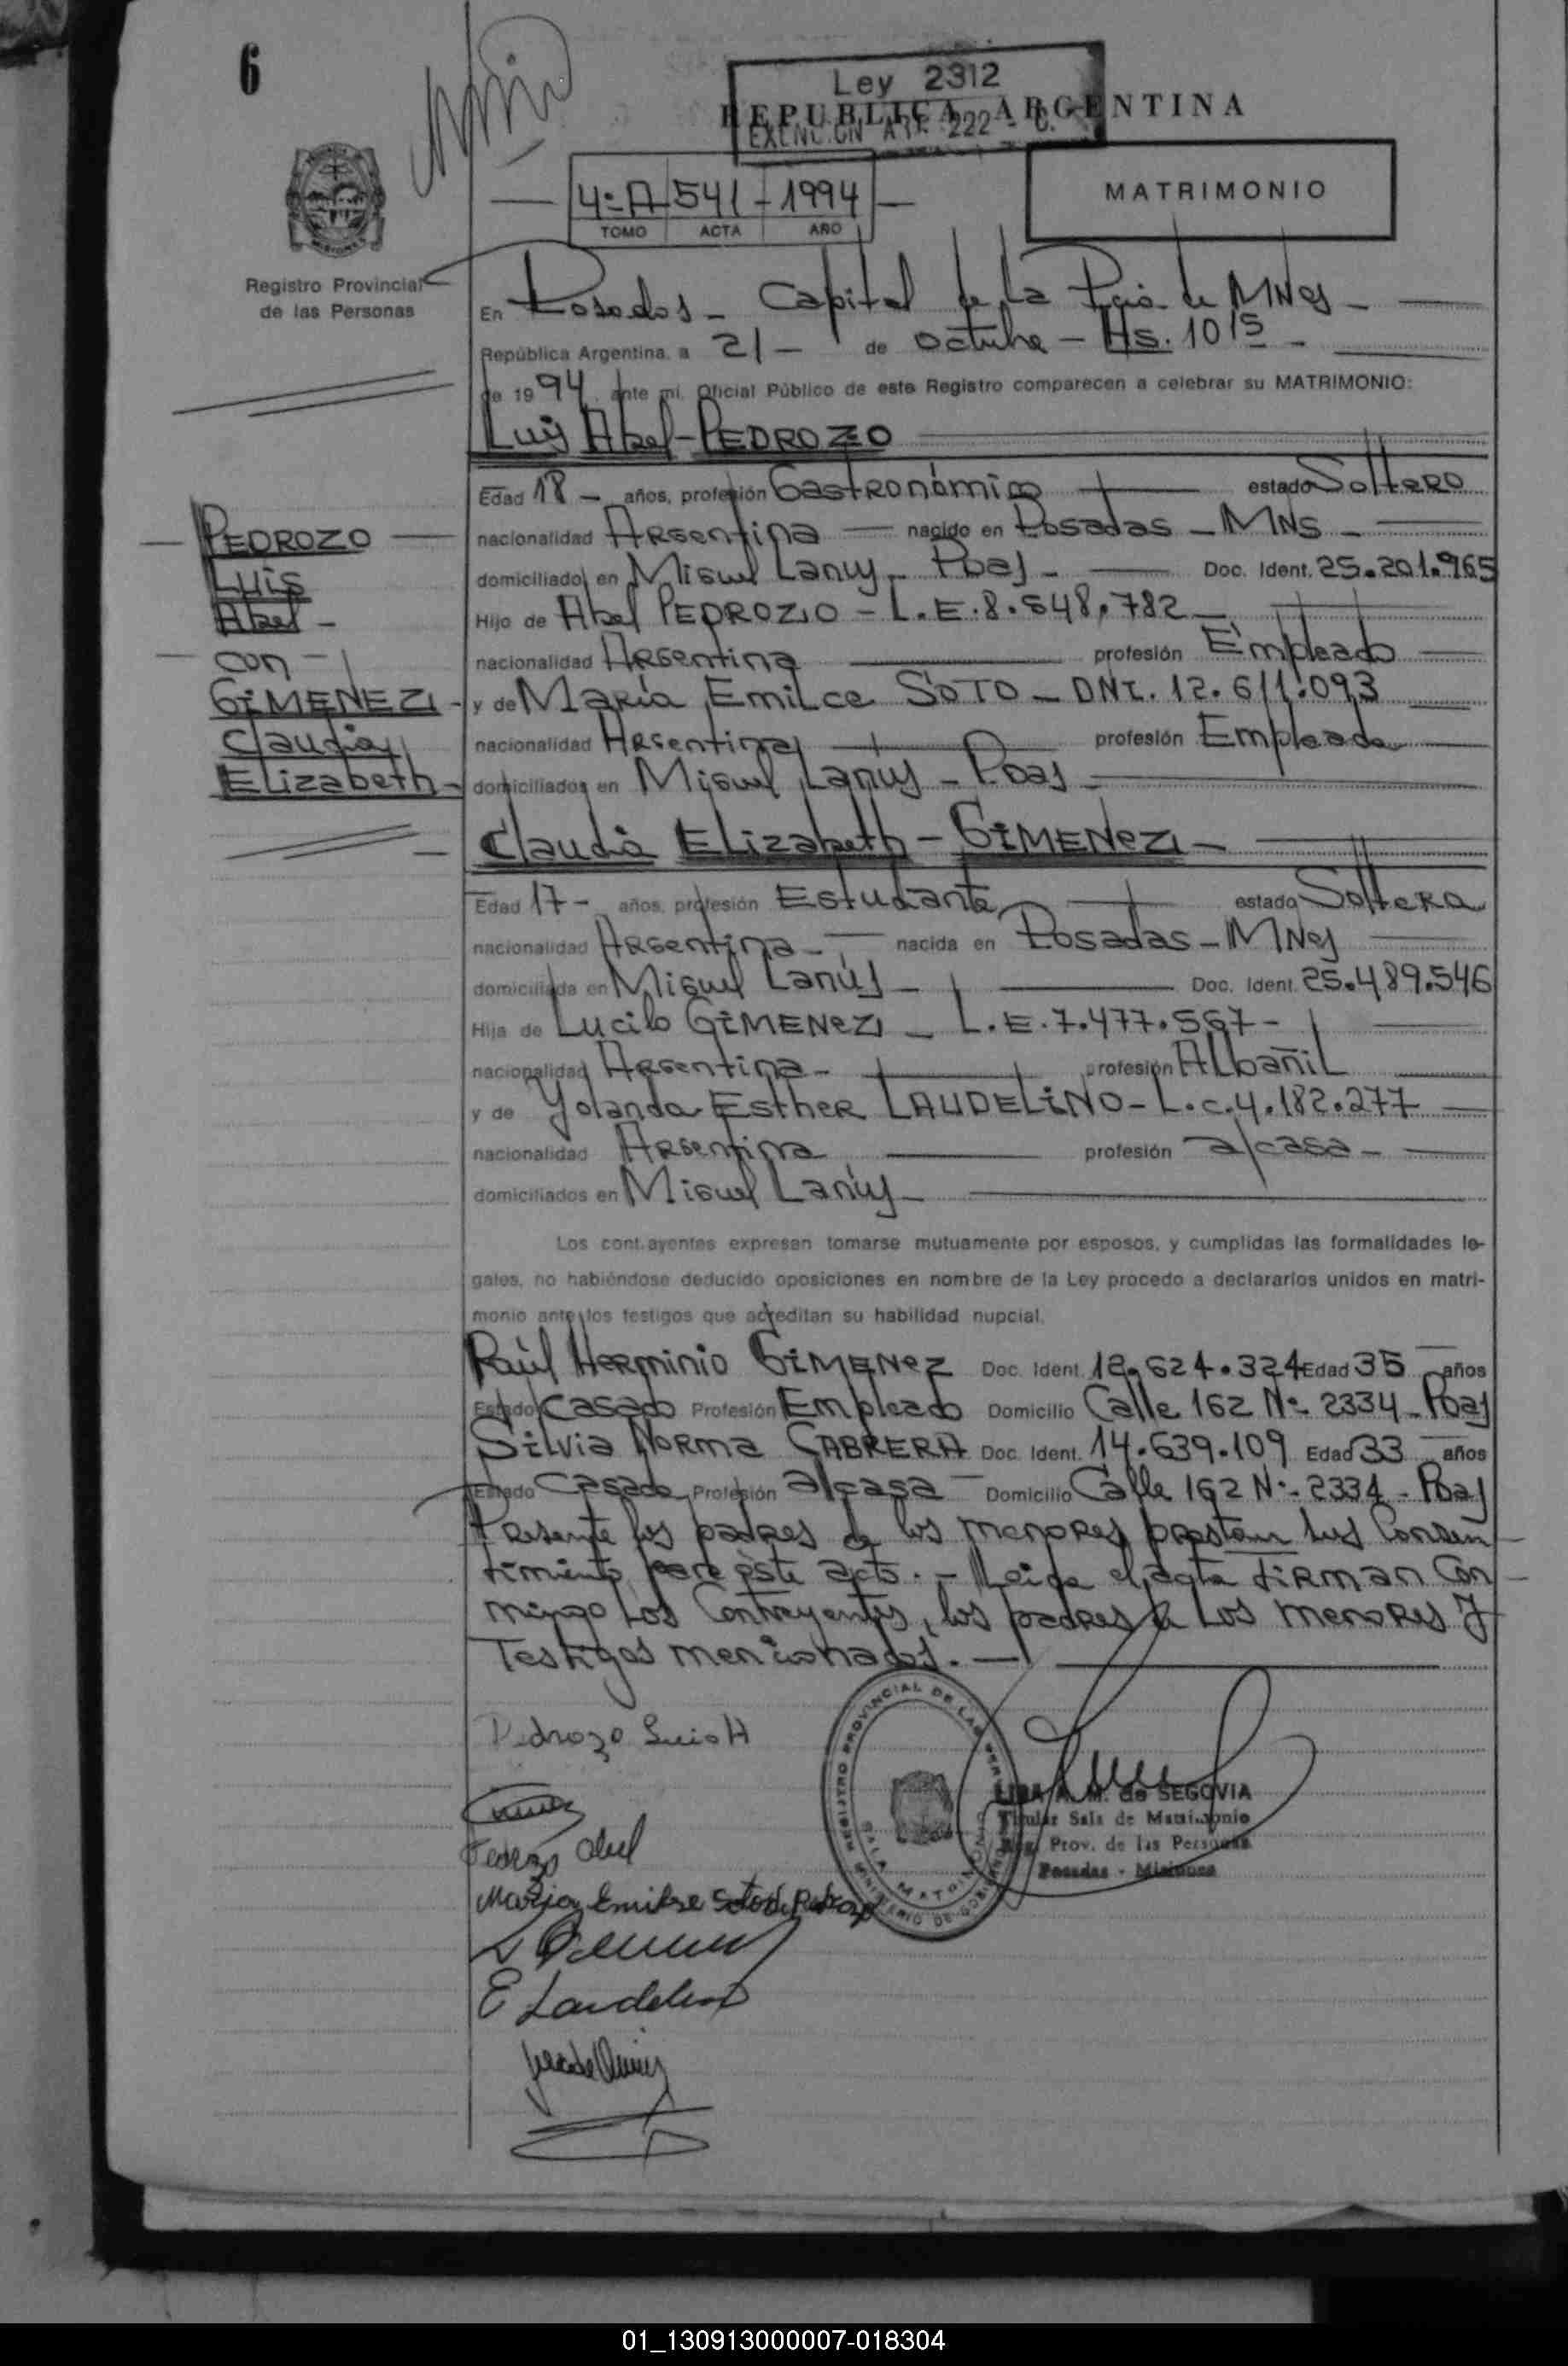 6
Ley 2312
REPUBLICA ARGENTINA
EXENCION ART. 222 - C.
4º A 541 - 1994
TOMO ACTA AÑO
MATRIMONIO
Registro Provincial
de las Personas
En Posadas - Capital de la Pcia de MNes -
República Argentina, a 21 - de octubre - Hs. 10 15 -
de 1994, ante mí, Oficial Público de este Registro comparecen a celebrar su MATRIMONIO:
Luis Abel - PEDROZO
Edad 18 - años, profesión Gastronómico estado Soltero
nacionalidad Argentina nacido en Posadas - MNS -
domiciliado en Miguel Lanús - Pdas - Doc. Ident. 25.201.965
Hijo de Abel PEDROZO - L.E. 8.548.782
nacionalidad Argentina profesión Empleado
y de María Emilce SOTO - DNI. 12.611.093
nacionalidad Argentina profesión Empleada
domiciliados en Miguel Lanús - Pdas -
PEDROZO
Luis
Abel -
con
GIMENEZ -
Claudia
Elizabeth -
Claudia Elizabeth - GIMENEZ -
Edad 17 - años, profesión Estudiante estado Soltera
nacionalidad Argentina - nacida en Posadas - MNes
domiciliada en Miguel Lanús - Doc. Ident. 25.489.546
Hija de Lucilo GIMENEZ - L.E. 7.477.567 -
nacionalidad Argentina - profesión Albañil
y de Yolanda Esther LAUDELINO - L.C. 4.182.277
nacionalidad Argentina profesión a/casa -
domiciliados en Miguel Lanús -
Los contrayentes expresan tomarse mutuamente por esposos, y cumplidas las formalidades le-
gales, no habiéndose deducido oposiciones en nombre de la Ley procedo a declararlos unidos en matri-
monio ante los testigos que acreditan su habilidad nupcial.
Raúl Herminio GIMENEZ Doc. Ident. 12.624.324 Edad 35 años
Estado Casado Profesión Empleado Domicilio Calle 162 Nº 2334 - Pdas
Silvia Norma CABRERA Doc. Ident. 14.639.109 Edad 33 años
Estado Casada Profesión a/casa Domicilio Calle 162 Nº 2334 - Pdas
Presente los padres de los menores prestan sus Consen
timiento para este acto. - Leida el acta firman Con
migo Los Contrayentes, los padres de Los menores y
Testigos mencionados. -
Pedrozo Luis A
Pedrozo Abel
Maria Emilse Soto de Pedrozo
E Laudelino
REGISTRO PROVINCIAL DE LAS PERSONAS
SALA MATRIMONIO
MINISTERIO DE GOBIERNO
A. M. de SEGOVIA
Titular Sala de Matrimonio
Reg. Prov. de las Personas
Posadas - Misiones
01_130913000007-018304